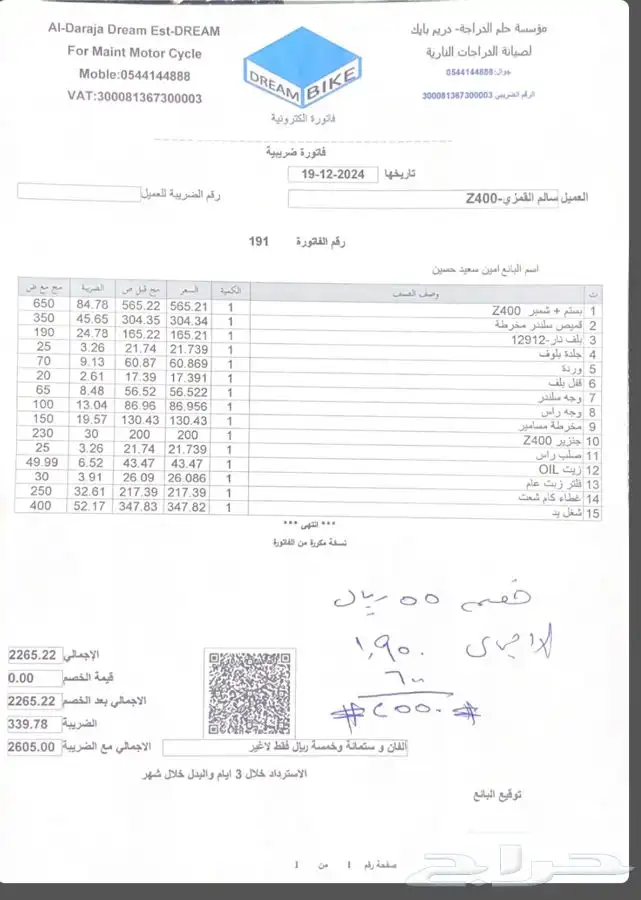 Al-Daraja Dream Est-DREAM
For Maint Motor Cycle
Moble:0544144888
VAT:300081367300003
DREAM BIKE
مؤسسة حلم الدراجة- دريم بايك
لصيانة الدراجات النارية
جوال:0544144888
الرقم الضريبي 300081367300003
فاتورة الكترونية
فاتورة ضريبية
تاريخها 19-12-2024
العميل سالم القمزي-Z400
رقم الضريبة للعميل
رقم الفاتورة 191
اسم البائع امين سعيد حسين
ت وصف الصنف الكمية السعر مج قبل ض الضريبة مج مع ض
1 بستم + شمبر Z400 1 565.21 565.22 84.78 650
2 قميص سلندر مخرطة 1 304.34 304.35 45.65 350
3 بلف نار-12912 1 165.21 165.22 24.78 190
4 جلدة بلوف 1 21.739 21.74 3.26 25
5 وردة 1 60.869 60.87 9.13 70
6 قفل بلف 1 17.391 17.39 2.61 20
7 وجه سلندر 1 56.522 56.52 8.48 65
8 وجه راس 1 86.956 86.96 13.04 100
9 مخرطة مسامير 1 130.43 130.43 19.57 150
10 جنزير Z400 1 200 200 30 230
11 صلب راس 1 21.739 21.74 3.26 25
12 زيت OIL 1 43.47 43.47 6.52 49.99
13 فلتر زيت عام 1 26.086 26.09 3.91 30
14 غطاء كام شفت 1 217.39 217.39 32.61 250
15 شغل يد 1 347.82 347.83 52.17 400
*** انتهى ***
نسخة مكررة من الفاتورة
خصم ٥٥ ريال
الاجمالي
٦٠٠
الإجمالي 2265.22
قيمة الخصم 0.00
الاجمالي بعد الخصم 2265.22
الضريبة 339.78
الاجمالي مع الضريبة 2605.00
الفان و ستمائة وخمسة ريال فقط لاغير
الاسترداد خلال 3 ايام والبدل خلال شهر
توقيع البائع
صفحة رقم 1 من 1
حراج